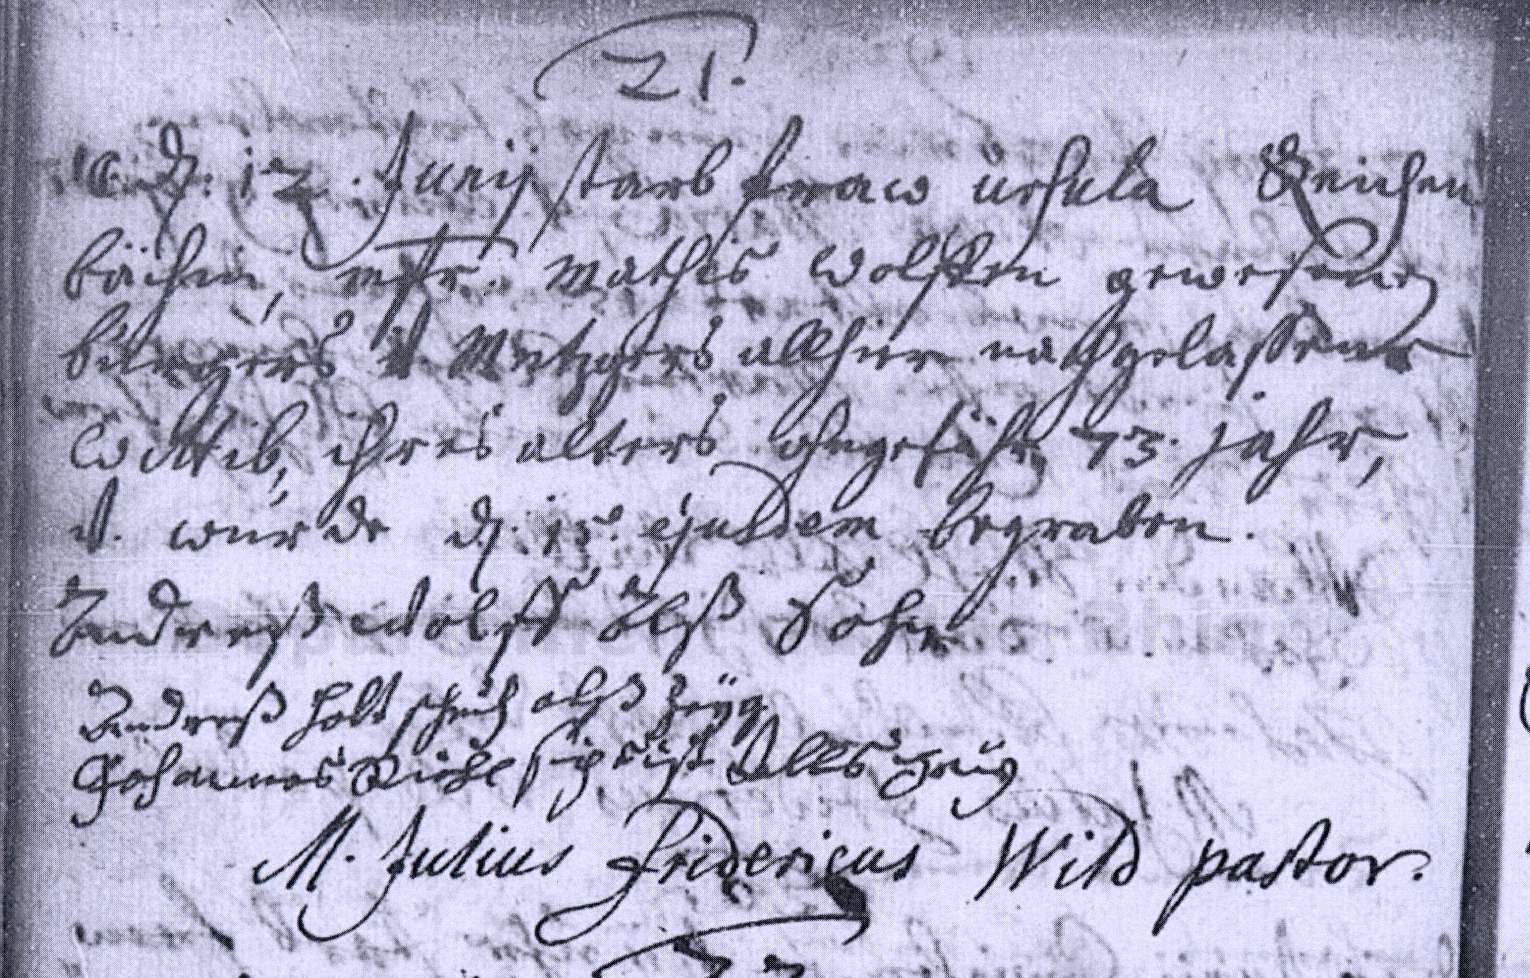 21.
d. 12. Junij starb fraw Ursula Reichen
bächin, mstr. Mathis Wolffen gewesenen
burgers v Metzgers allhier nachgelaßene
Wittib, ihres alters ohngefähr 73. jahr,
v. wurde d. 15. ejusdem begraben.
Andreaß Wolff alß Sohn
Andreaß holtschuch alß zeüg
Johannes alls zeüg
M. Julius Fridericus Wild pastor.